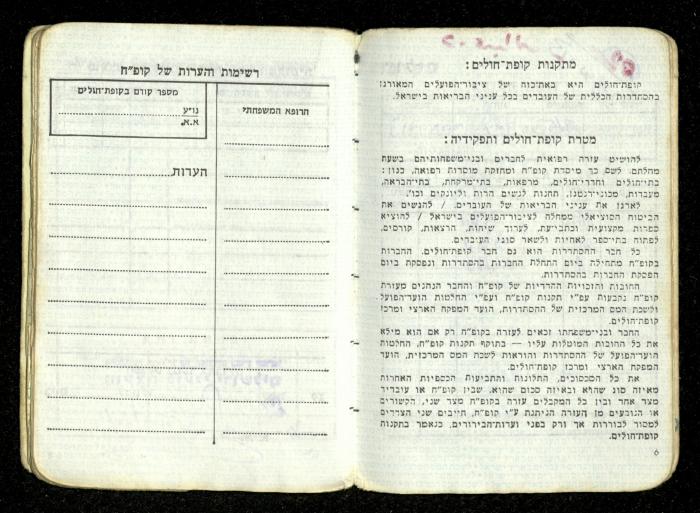 מתקנות קופת־חולים:
קופת־חולים היא באת־כוח של ציבור־הפועלים המאורגן
בהסתדרות הכללית של העובדים בכל עניני הבריאות בישראל.
מטרת קופת־חולים ותפקידיה:
להושיט עזרה רפואית לחברים ובני־משפחותיהם בשעת
מחלתם. לשם כך מיסדת קופ״ח ומחזקת מוסדות רפואה, כגון:
בתי־חולים וחדרי־חולים, מרפאות, בתי־מרקחת, בתי־הבראה,
מעבדות, מכוני־רנטגן, תחנות לנשים הרות וליונקים וכו׳.
לארגן את עניני הבריאות של העובדים. / להגשים את
הביטוח הסוציאלי ממחלה לציבור־הפועלים בישראל / להוציא
ספרות מקצועית וכתבי־עת, לערוך שיחות, הרצאות, קורסים,
לפתוח בתי־ספר לאחיות ולשאר סוגי העובדים.
כל חבר ההסתדרות הוא גם חבר קופת־חולים. החברות
בקופ״ח מתחילה ביום התחלת החברות בהסתדרות ונפסקת ביום
הפסקת החברות בהסתדרות.
החובות והזכויות ההדדיות של קופ״ח והחבר הנהנים מעזרת
קופ״ח נקבעות עפ״י תקנות קופ״ח ועפ״י החלטות הועד־הפועל
ולשכת המס המרכזית של ההסתדרות, הועד המפקח הארצי ומרכז
קופת־חולים.
החבר ובני־משפחתו זכאים לעזרה בקופ״ח רק אם הוא מילא
את כל החובות המוטלות עליו — בתוקף תקנות קופ״ח, החלטות
הועד־הפועל של ההסתדרות והוראות לשכת המס המרכזית, הועד
המפקח הארצי ומרכז קופת־חולים.
את כל הסכסוכים, התלונות והתביעות הכספיות האחרות
מאיזה סוג שהוא ובאיזה סכום שהוא, שבין קופ״ח או עובדיה
מצד אחד ובין כל המקבלים עזרה בקופ״ח מצד שני, הקשורים
או הנובעים מן העזרה הניתנת ע״י קופ״ח, חייבים שני הצדדים
למסור לבוררות אך ורק בפני ועדות־הבירורים, כנאמר בתקנות
קופת־חולים.
6
רשימות והערות של קופ״ח
הרופא המשפחתי
מספר קודם בקופת־חולים
נו״ע
א.א.
הערות